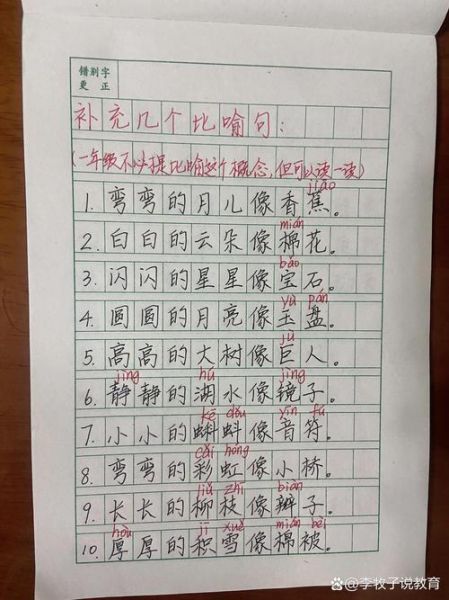 错别字
更正
补充几个比喻句:
(一年级不必提比喻这个概念,但可以读一读)
jiāo
1. 弯弯的月儿像香蕉。
mián
2. 白白的云朵像棉花。
bǎo
3. 闪闪的星星像宝石。
yù pán
4. 圆圆的月亮像玉盘。
jù
5. 高高的大树像巨人。
jìng hú jìng
6. 静静的湖水像镜子。
kē dǒu yīn fú
7. 小小的蝌蚪像音符。
cǎi hóng
8. 弯弯的彩虹像小桥。
liǔ zhī biàn
9. 长长的柳枝像辫子。
hòu jī xuě mián bèi
10. 厚厚的积雪像棉被。
@李牧子说教育